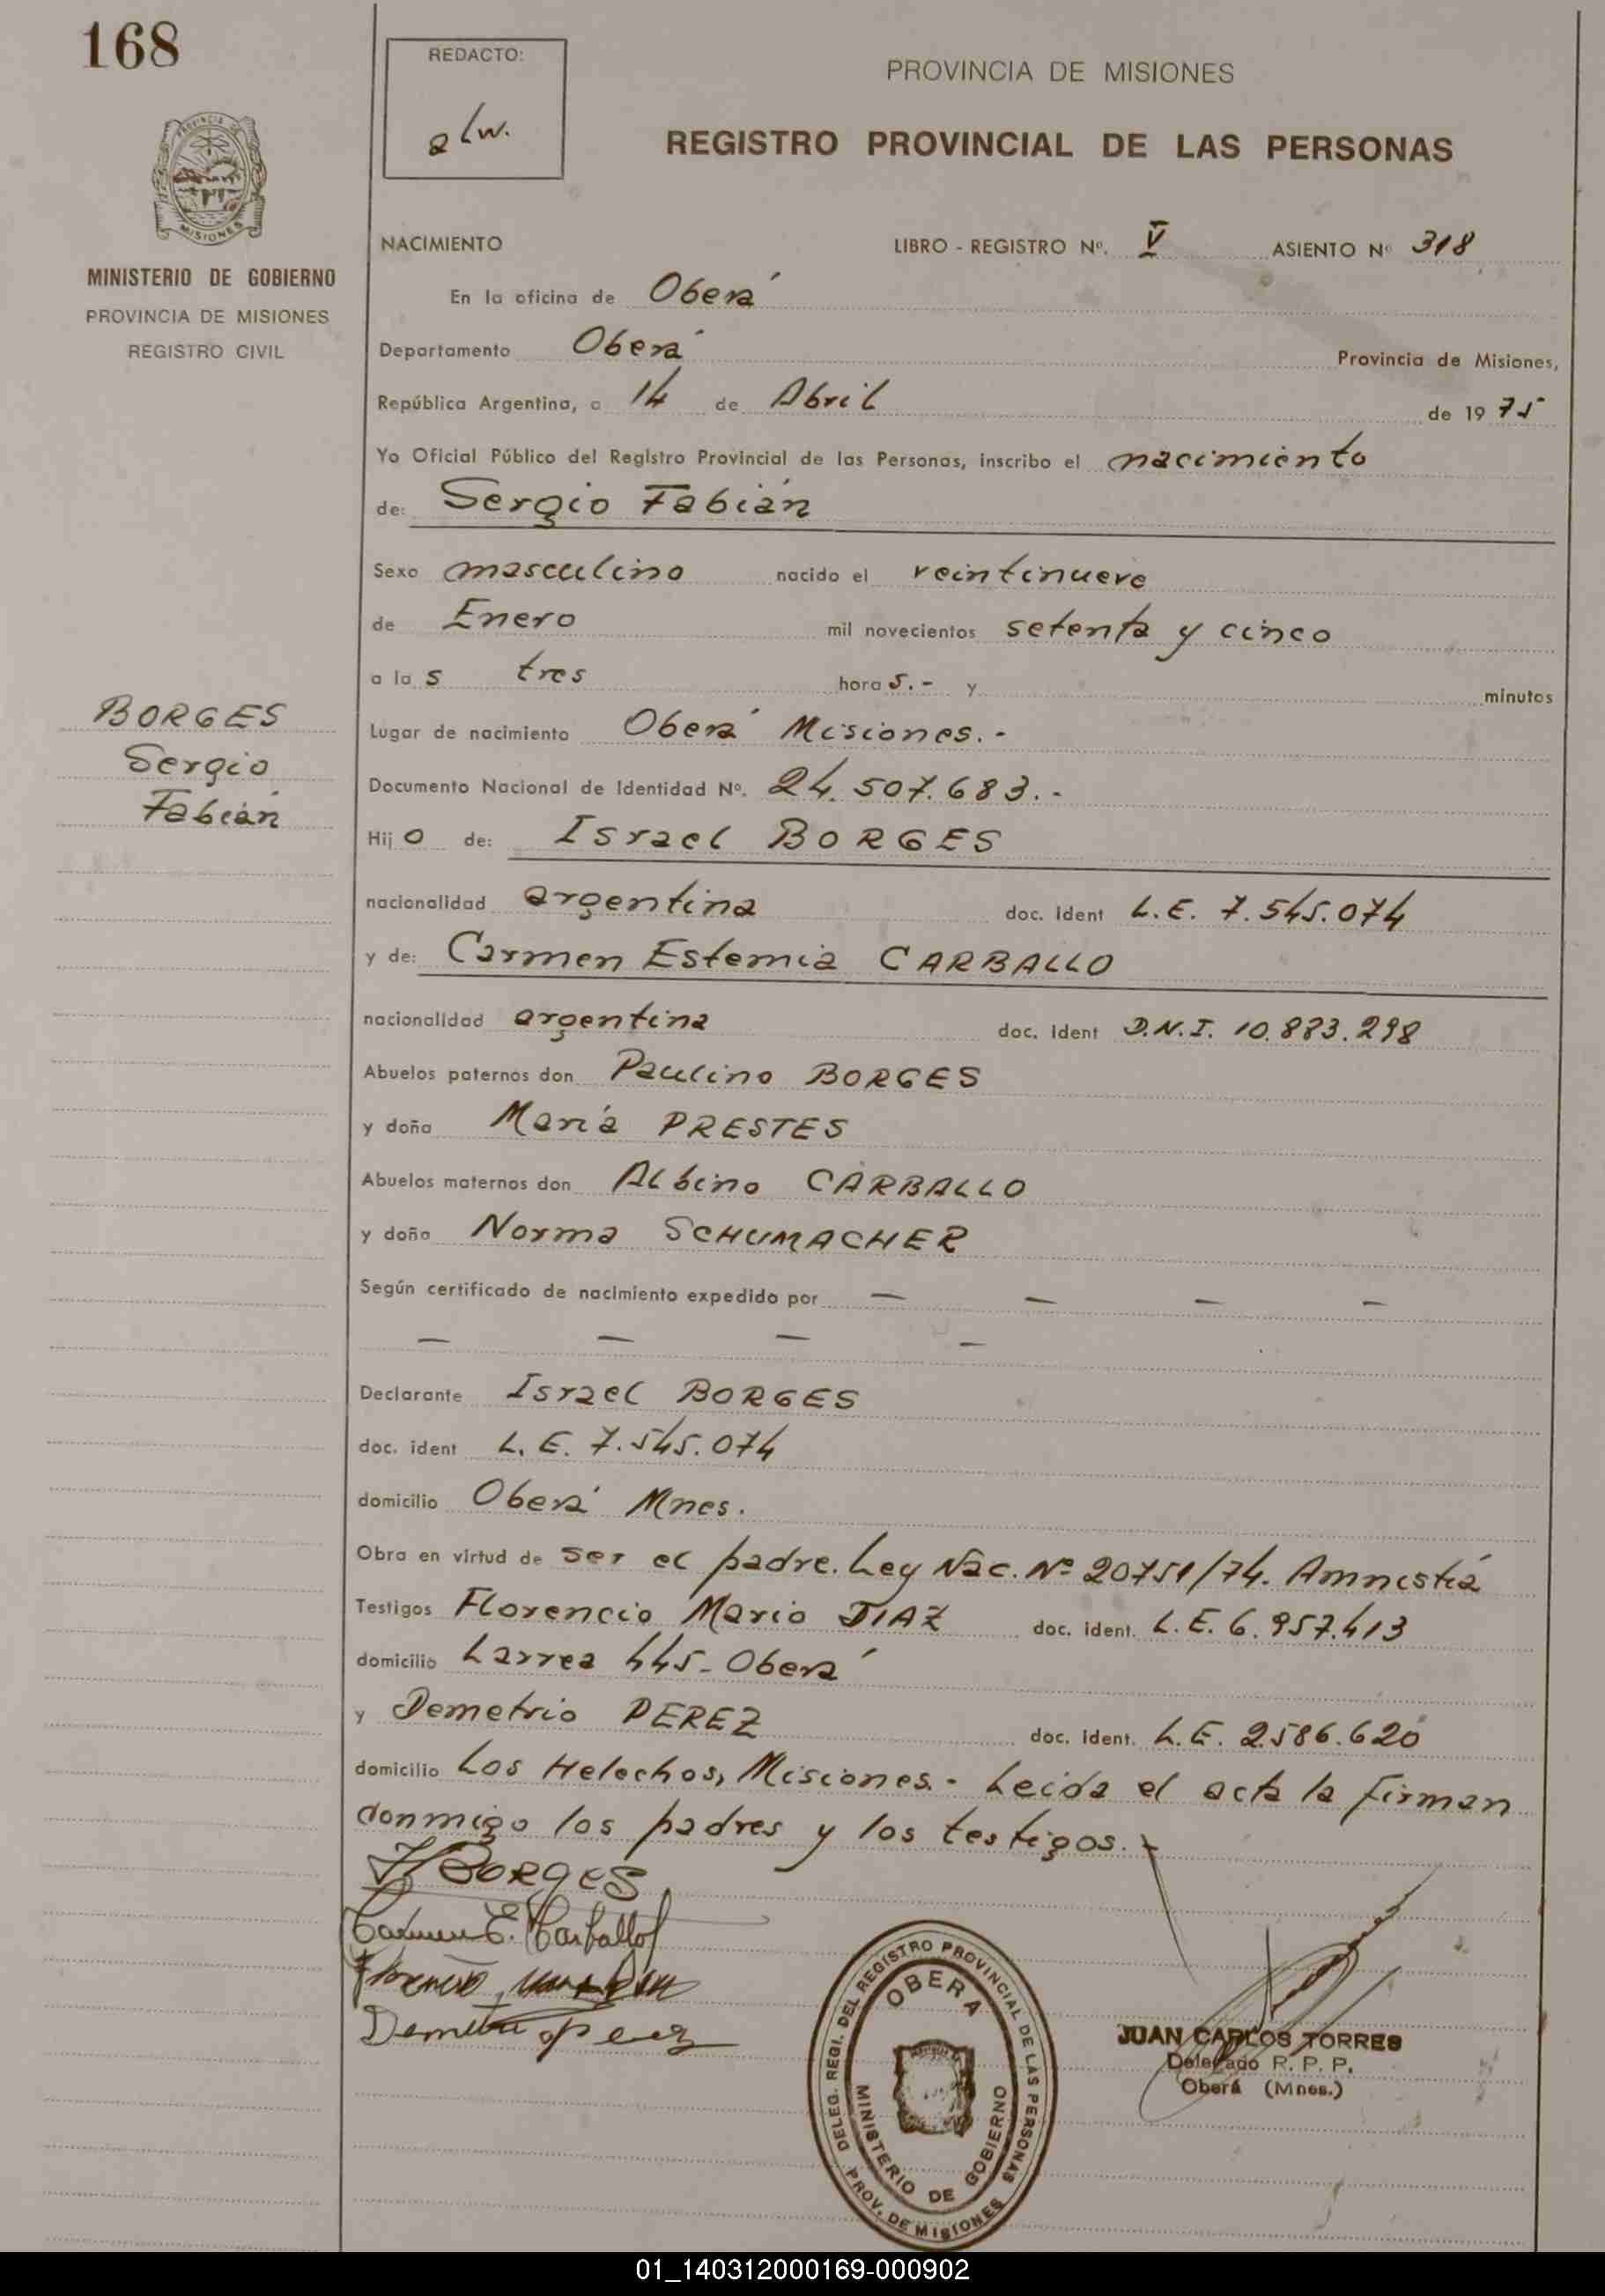 168
REDACTO:
PROVINCIA DE MISIONES
REGISTRO PROVINCIAL DE LAS PERSONAS
PROVINCIA DE
MISIONES
MINISTERIO DE GOBIERNO
PROVINCIA DE MISIONES
REGISTRO CIVIL
NACIMIENTO LIBRO - REGISTRO Nº. V ASIENTO Nº 318
En la oficina de Oberá
Departamento Oberá Provincia de Misiones,
República Argentina, a 14 de Abril de 1975
Yo Oficial Público del Registro Provincial de las Personas, inscribo el nacimiento
de: Sergio Fabián
Sexo masculino nacido el veintinueve
de Enero mil novecientos setenta y cinco
a las tres horas.- y minutos
Lugar de nacimiento Oberá Misiones.-
Documento Nacional de Identidad Nº. 24.507.683.-
Hijo de: Israel BORGES
BORGES
Sergio
Fabián
nacionalidad argentina doc. ident L.E. 7.545.074
y de: Carmen Estemia CARBALLO
nacionalidad argentina doc. ident D.N.I. 10.883.298
Abuelos paternos don Paulino BORGES
y doña María PRESTES
Abuelos maternos don Albino CARBALLO
y doña Norma SCHUMACHER
Según certificado de nacimiento expedido por — — — —
— — — —
Declarante Israel BORGES
doc. ident L.E. 7.545.074
domicilio Oberá Mnes.
Obra en virtud de ser el padre. Ley Nac. Nº 20751/74. Amnistiá
Testigos Florencio Mario DIAZ doc. ident. L.E. 6.957.413
domicilio Larrea 445-Oberá
y Demetrio PEREZ doc. ident. L.E. 2.586.620
domicilio Los Helechos, Misiones.- Leida el acta la firman
conmigo los padres y los testigos.-
I BORGES
Carmen E. Carballo
Demetrio Perez
DELEG. REGI. DEL REGISTRO PROVINCIAL DE LAS PERSONAS
PROV. DE MISIONES
OBERA
MINISTERIO DE GOBIERNO
JUAN CARLOS TORRES
Delegado R. P. P.
Oberá (Mnes.)
01_140312000169-000902